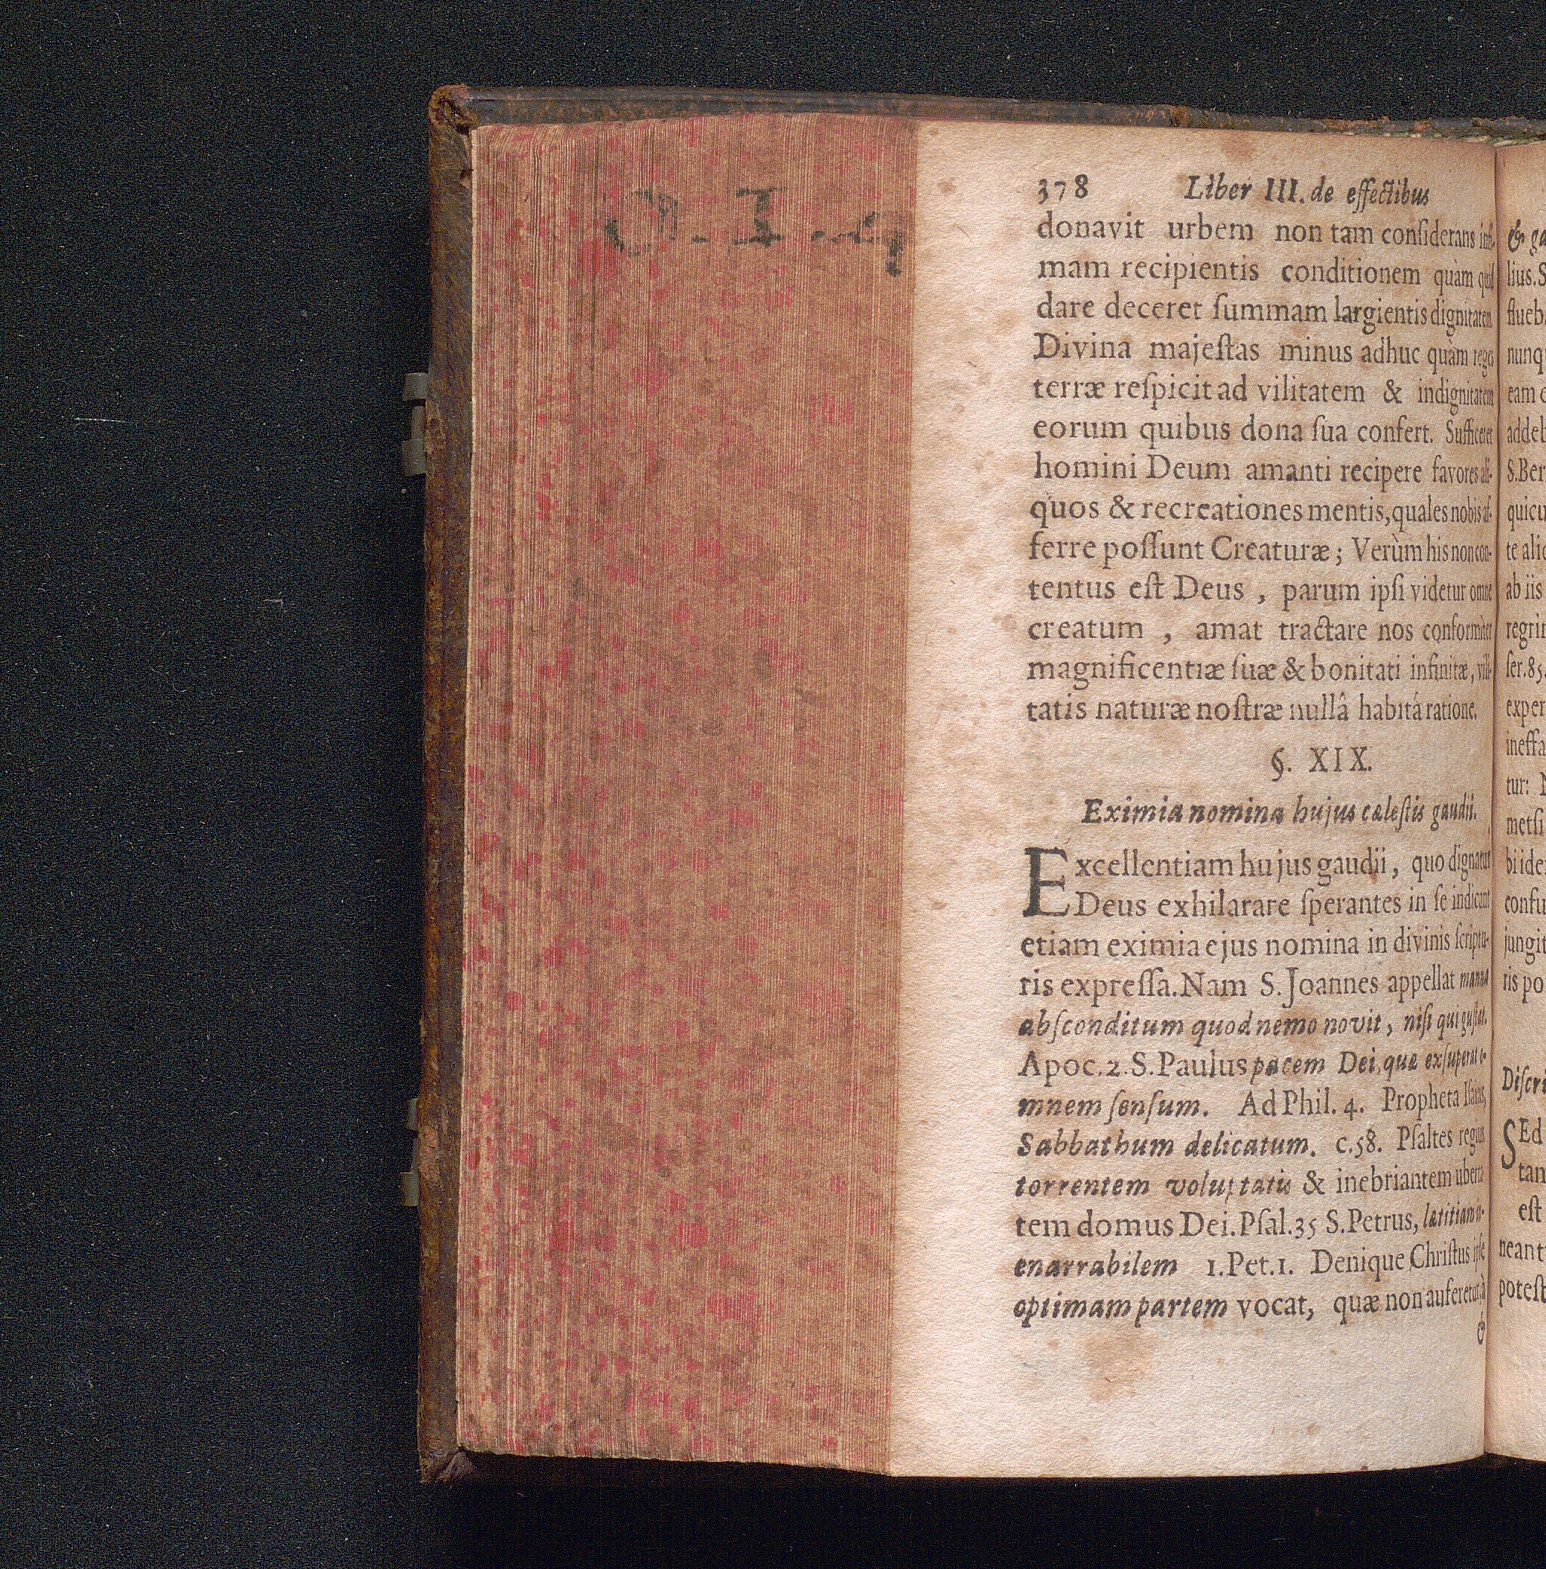 378 Liber III. de effectibus
donavit urbem non tam conſiderans infi-
mam recipientis conditionem quàm quid
dare deceret ſummam largientis dignitatem
Divina majeſtas minus adhuc quàm reges
terræ reſpicit ad vilitatem & indignitatem
eorum quibus dona ſua confert. Sufficeret
homini Deum amanti recipere favores ali-
quos & recreationes mentis, quales nobis af-
ferre poſſunt Creaturæ; Verùm his non con-
tentus eſt Deus, parum ipſi videtur omne
creatum, amat tractare nos conformiter
magnificentiæ ſuæ & bonitati infinitæ, vili-
tatis naturæ noſtræ nullâ habitá ratione.
§. XIX.
Eximia nomina hujus cæleſtis gaudii.
Excellentiam hujus gaudii, quo dignatur
Deus exhilarare ſperantes in ſe indicant
etiam eximia ejus nomina in divinis ſcriptu-
ris expreſſa. Nam S. Joannes appellat manna
abſconditum quod nemo novit, niſi qui guſtat.
Apoc. 2. S. Paulus pacem Dei, quæ exſuperat o-
mnem ſenſum. Ad Phil. 4. Propheta Iſaias,
Sabbathum delicatum. c. 58. Pſaltes regius
torrentem voluptatis & inebriantem uberta-
tem domus Dei. Pſal. 35 S. Petrus, lætitiam in-
enarrabilem 1. Pet. 1. Denique Chriſtus ipſe
optimam partem vocat, quæ non auferetur à
&
& ga
lius. S
flueb
nunq
eam
addeb
S. Ber
quicu
te alic
ab iis
regrin
ſer. 85.
exper
ineffa
tur:
metſi
bi ide
confu
jungit
ris po
Diſcri
SEd
tam
eſt
neant
poteſt